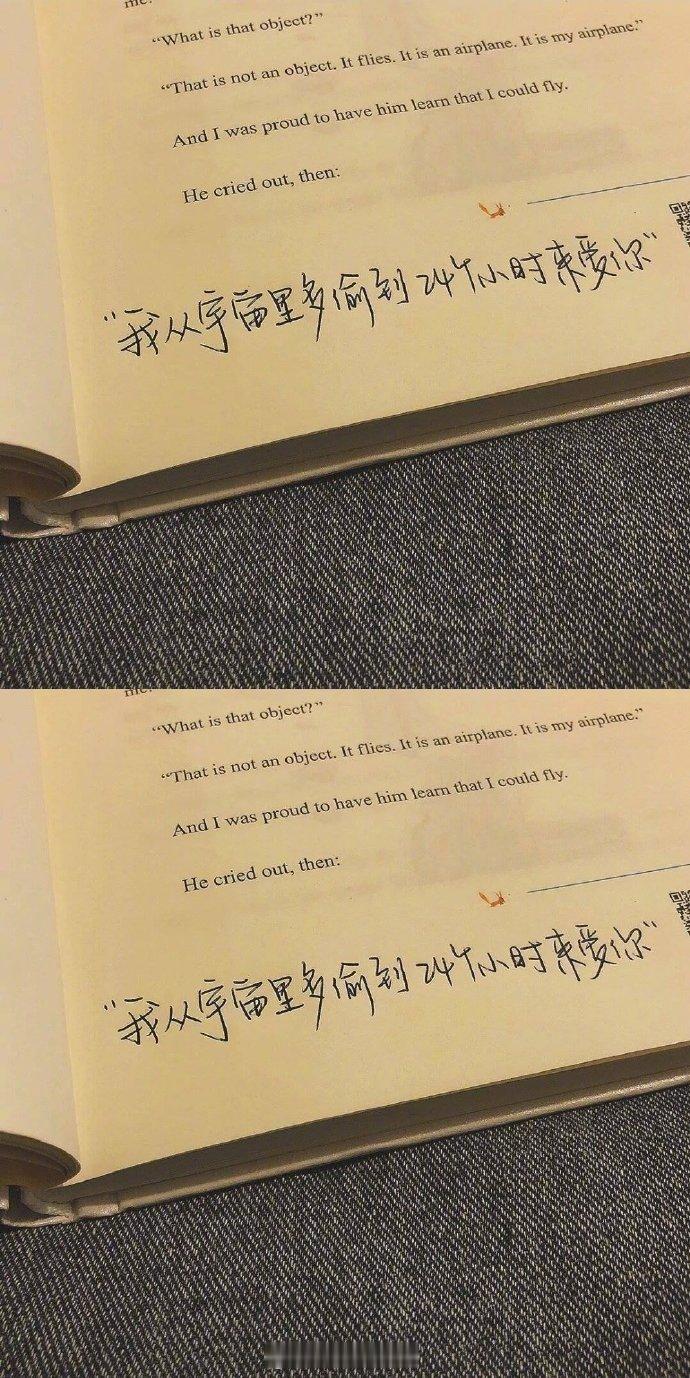 me.
“What is that object?”
“That is not an object. It flies. It is an airplane. It is my airplane.”
And I was proud to have him learn that I could fly.
He cried out, then:
“我从宇宙里多偷到24个小时来爱你”
me.
“What is that object?”
“That is not an object. It flies. It is an airplane. It is my airplane.”
And I was proud to have him learn that I could fly.
He cried out, then:
“我从宇宙里多偷到24个小时来爱你”